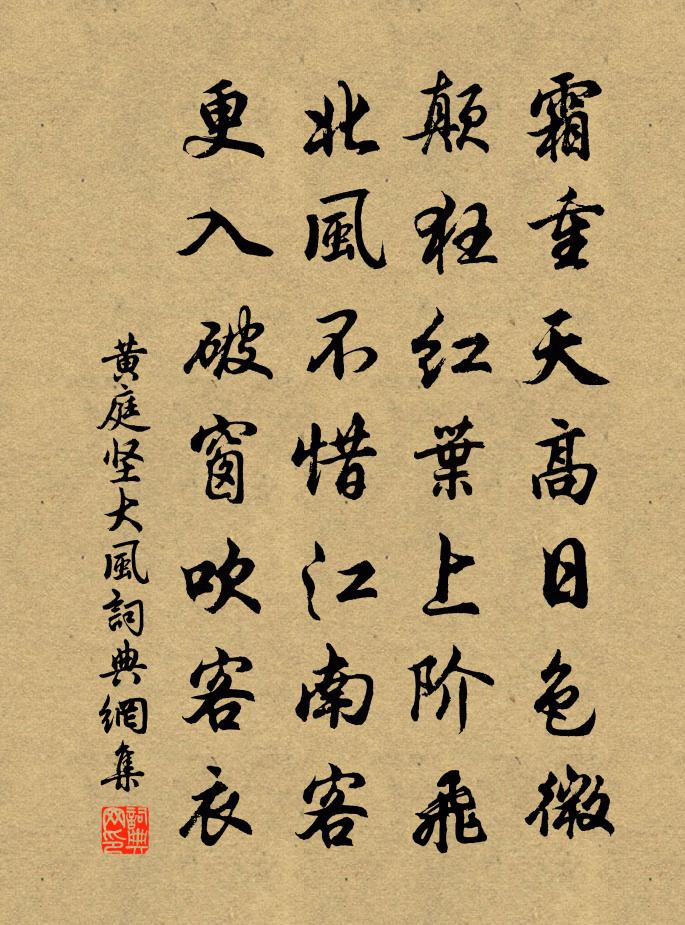 霜重天高日色微
颠狂红葉上阶飛
北風不惜江南客
更入破窗吹客衣
黄庭坚大風詞典網集
詞典网印